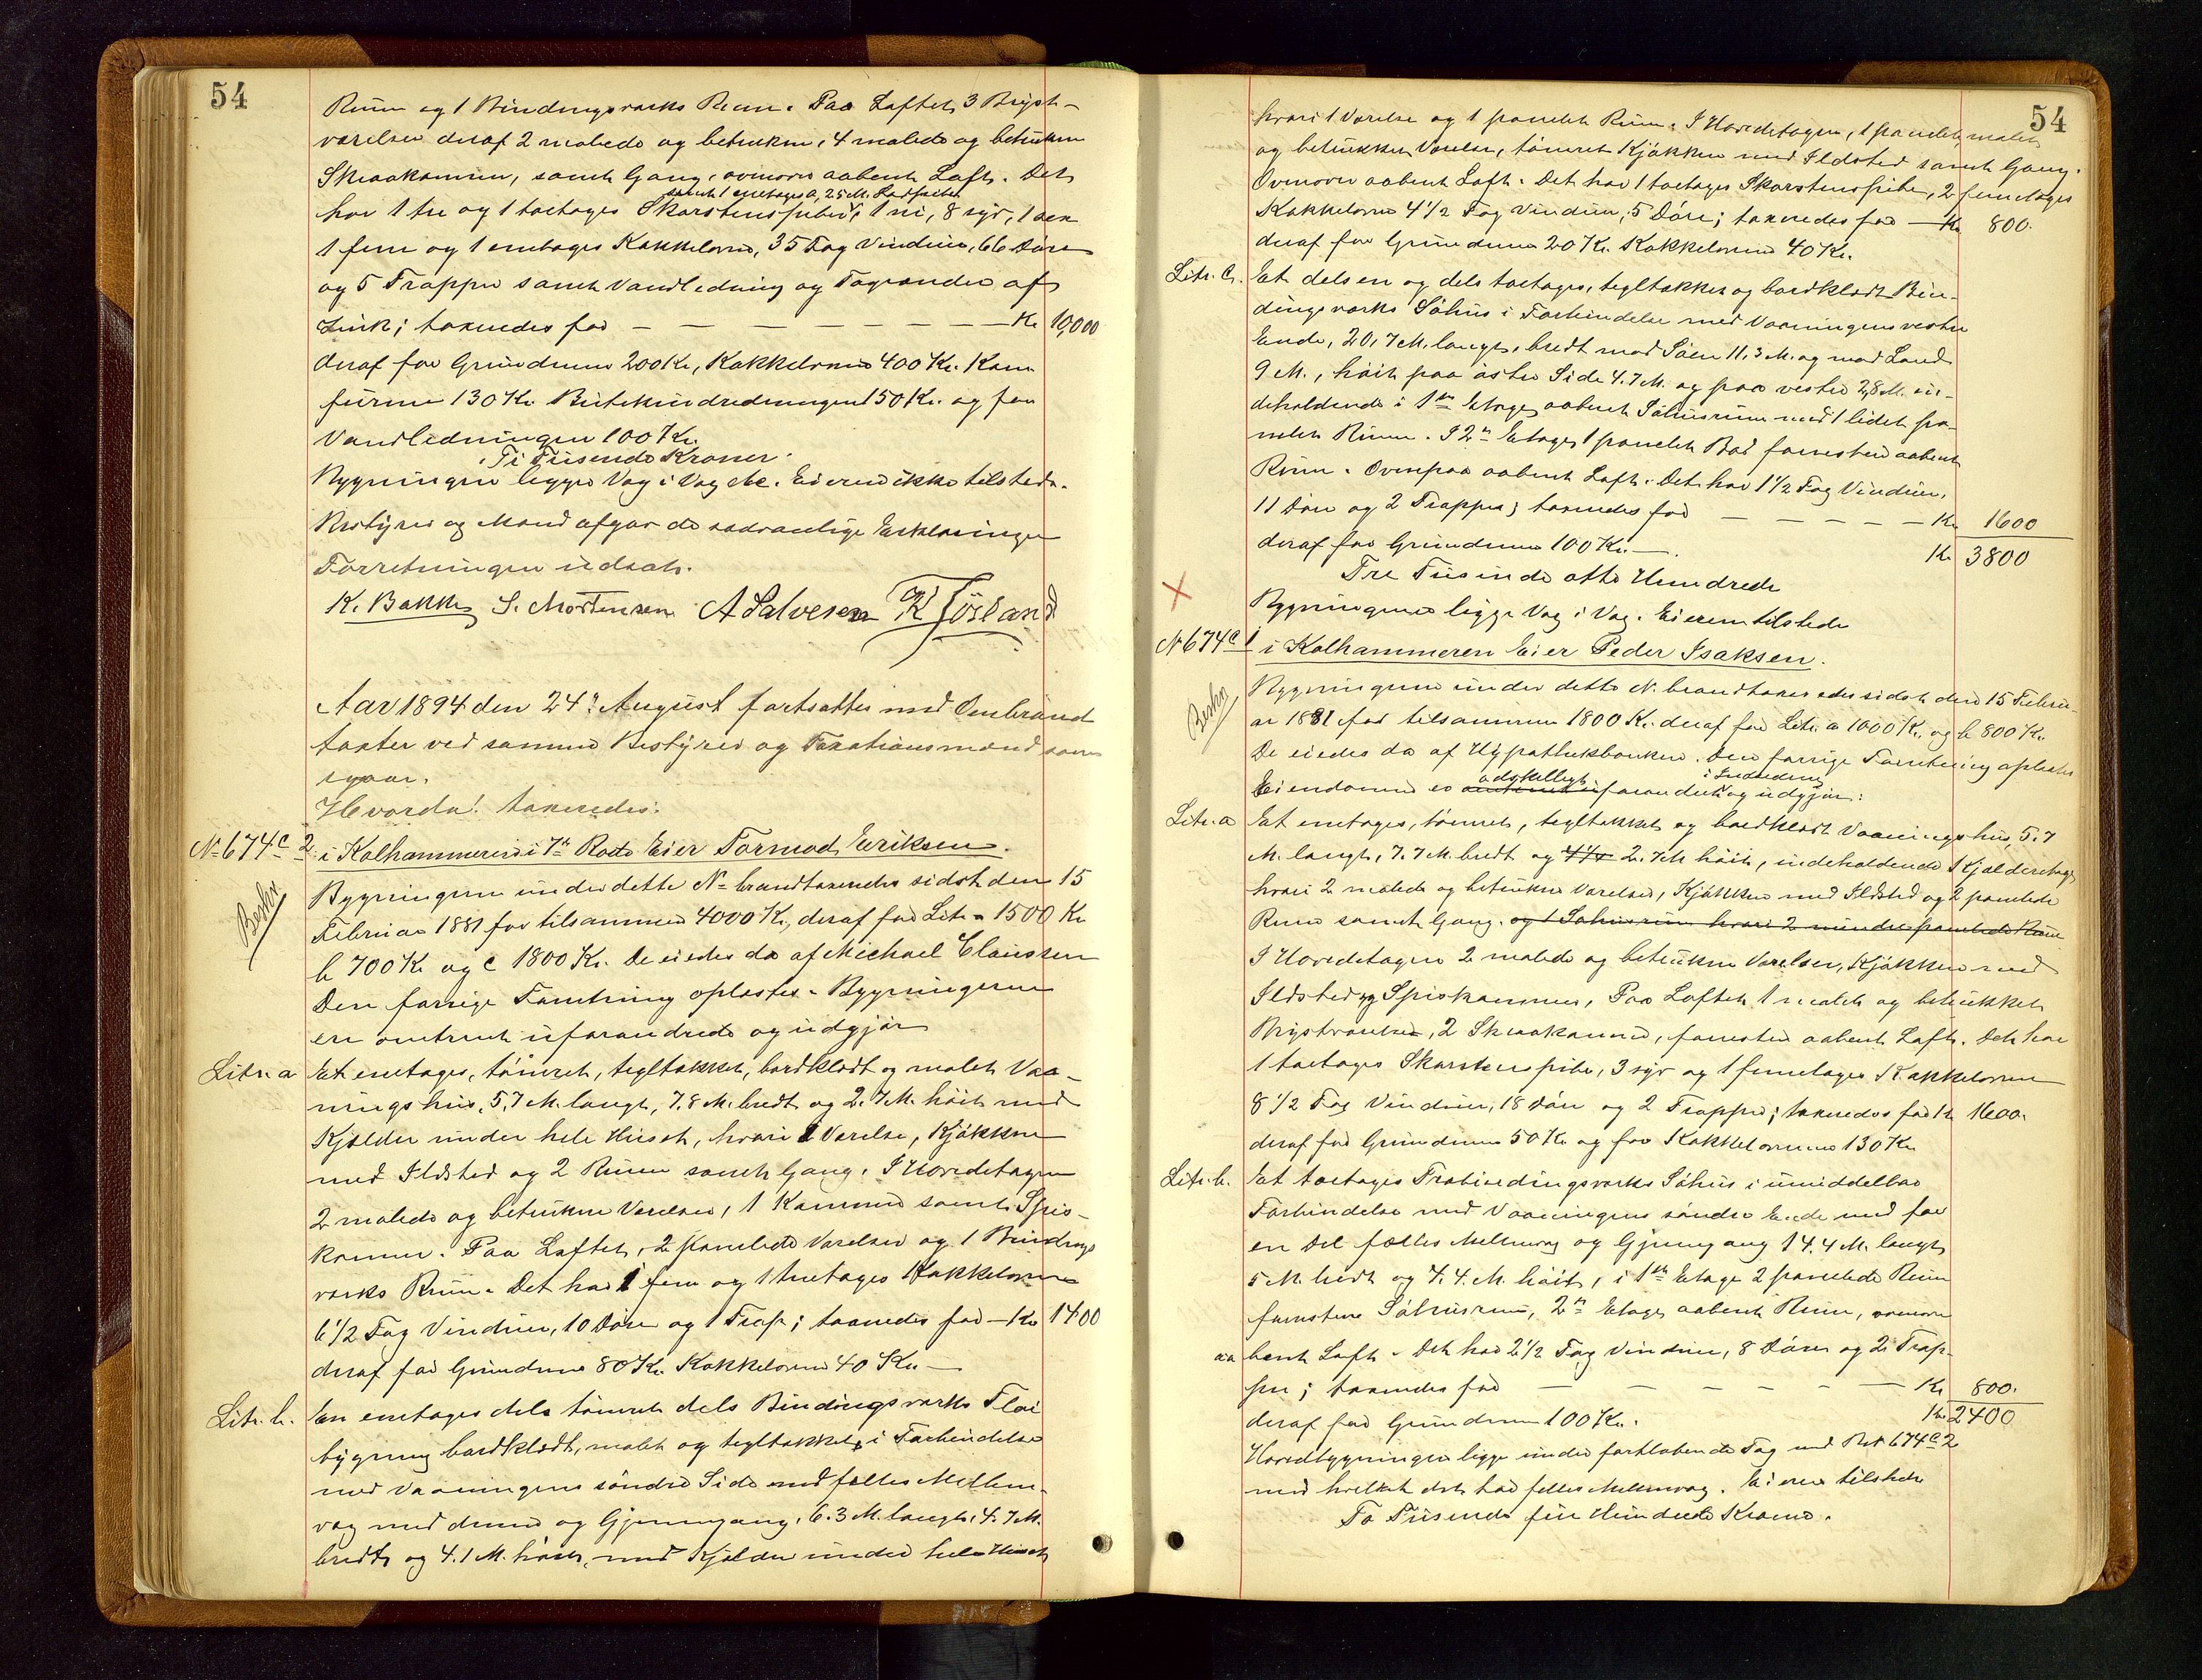 54
Rum og 1 Bindingsværks Rum. Paa Loftet 3 Bryst-
værelser deraf 2 malede og betrukne, 4 malede og betrukne
Skraakammer, samt Gang, ovenover aabent Loft. Det
samt 1 enetages 0,25 M.
har 1 tre og 1 toetages Skorstenspiber, 1 ni, 8 syv, 1 sex
1 fem og 1 enetages Kakkelovne, 35 Fag Vinduer, 66 Døre
og 5 Trapper samt Vandledning og Tagrender af
Zink; taxeredes for — — — — — — Kr 10,000
deraf for Grundmur 200 Kr, Kakkelovne 400 Kr. Kom
furene 130 Kr. Butikindredningen 150 Kr. og for
Vandledningen 100 Kr.
Ti Tusende Kroner.
Bygningen ligger Væg i Væg Eieren ikke tilstede.
Bestyrer og Mænd afgav de sædvanlige Erklæringer
Forretningen udsat.
K. Bakke S. Mortensen A Salvesen K Törland
Aar 1894 den 24de August fortsattes med Ombrand
taxter ved samme Bestyrer og Taxationsmænd som
igaar.
Hvorda! taxeredes:
No 674c 2 i Kalhammeren i 7de Rode Eier Tormod Eriksen.
Beskr
Bygningerne under dette No brandtaxeredes sidst den 15
Februar 1881 for tilsammen 4000 Kr., deraf for Litr a 1500 Kr
b 700 Kr og c 1800 Kr. De eiedes da af Michael Claussen
Den forrige Forretning oplæstes. Bygningerne
er omtrent uforandrede og udgjør
Litr. a Et enetages, tømret, tegltækket, bordklædt og malet Vaa-
ningshus, 5,7 M. langt, 7.8 M. bredt og 2.7 M. høit med
Kjælder under hele Huset, hvori 1 Værelse, Kjøkken
med Ildsted og 2 Rum samt Gang. I Hovedetagen
2 malede og betrukne Værelser, 1 Kammer samt Spis-
kammer. Paa Loftet, 2 panelede Værelser og 1 Bindings
værks Rum. Det har 1 fem og 1 tretages Kakkelovne
6 1/2 Fag Vinduer, 10 Døre og 1 Trap; taxeredes for — Kr 1400
deraf for Grundmur 80 Kr. Kakkelovne 40 Kr. —
Litr. b. En enetages dels tømret dels Bindingsværks Fløi
bygning bordklædt, malet og tegltækket, i Forbindelse
med Vaaningens søndre Side med fælles Mellem-
væg med denne og Gjennemgang, 6.3 M. langt, 4.7 M.
bredt og 4.1 M. høit, med Kjælder under hele Huset
54
hvori 1 Værelse og 1 panelet Rum. I Hovedetagen, 1 panelet, malet
og betrukket Værelse, tømret Kjøkken med Ildsted samt Gang.
Ovenover aabent Loft. Det har 1 toetages Skorstenspibe, 2 femetages
Kakkelovne 4 1/2 Fag Vinduer, 5 Døre; taxeredes for — Kr 800.
deraf for Grundmur 20 Kr. Kakkelovne 40 Kr.
Litr. c. Et dels en og dels toetages, tegltækket og bordklædt Bin-
dingsværks Søhus i Forbindelse med Vaaningens vestre
Ende, 20,7 M. langt, bredt mod Søen 11,3 M. og mod Land
9 M., høit paa østre Side 4.7 M. og paa vestre 2,8 M. in-
deholdende i 1ste Etage aabent Søhusrum med 1 lidet pa-
nelet Rum. I 2n Etage 1 panelet Bod forresten aabent
Rum. Ovenpaa aabent Loft. Det har 1 1/2 Fag Vinduer,
11 Døre og 2 Trapper; taxeredes for — — — — — Kr 1600
deraf for Grundmur 100 Kr. —. Kr 3800
Tre Tusinde otte Hundrede
Bygningerne ligge Væg i Væg. Eieren tilstede
No 674c 1 i Kalhammeren Eier Peder Isaksen.
Beskr
Bygningerne under dette No. brandtaxeredes sidst den 15 Febru-
ar 1881 for tilsammen 1800 Kr. deraf for Litr. a 1000 Kr. og b 800 Kr.
De eiedes da af Hypothekbanken. Den forrige Forretning oplæstes
adskilligt i Indredning
Eiendommen er omtrent uforandret og udgjør:
Litr. a Et enetages, tømret, tegltækket og bordklædt Vaaningshus, 5.7
M. langt, 7.7 M. bredt og 4 1/4 2.7 M høit, indeholdende 1 Kjælderetage
hvori 2 malede og betrukne Værelser, Kjøkken med Ildsted og 2 panelede
Rum samt Gang. og 1 Søhusrum hvori 2 mindre panelede Rum
I Hovedetagen 2 malede og betrukne Værelser, Kjøkken med
Ildsted og Spiskammer, Paa Loftet 1 malet og betrukket
Brystværelse, 2 Skraakammer, forresten aabent Loft. Det har
1 toetages Skorstenspibe, 3 syv og 1 femetages Kakkelovn
8 1/2 Fag Vinduer, 18 Døre og 2 Trapper; taxeredes for Kr 1600.
deraf for Grundmur 50 Kr og for Kakkelovnene 130 Kr
Litr. b. Et toetages Træbindingsværks Søhus i umiddelbar
Forbindelse med Vaaningens søndre Ende med for
en Del fælles Mellemvæg og Gjennemgang 14.4 M. langt
5 M. bredt og 7.4. M. høit, i 1ste Etage 2 panelede Rum
forresten Søhusrum, 2n Etage aabent Rum, ovenover
aabent Loft. Det har 2 1/2 Fag Vinduer, 8 Døre og 2 Trap-
per; taxeredes for — — — — — — Kr 800.
deraf for Grundmur 100 Kr. Kr 2400
Hovedbygningen ligge under fortløbende Tag med No 674c 2
med hvilket det har fælles Mellemvæg. Eieren tilstede
To Tusende fire Hundrede Kroner.